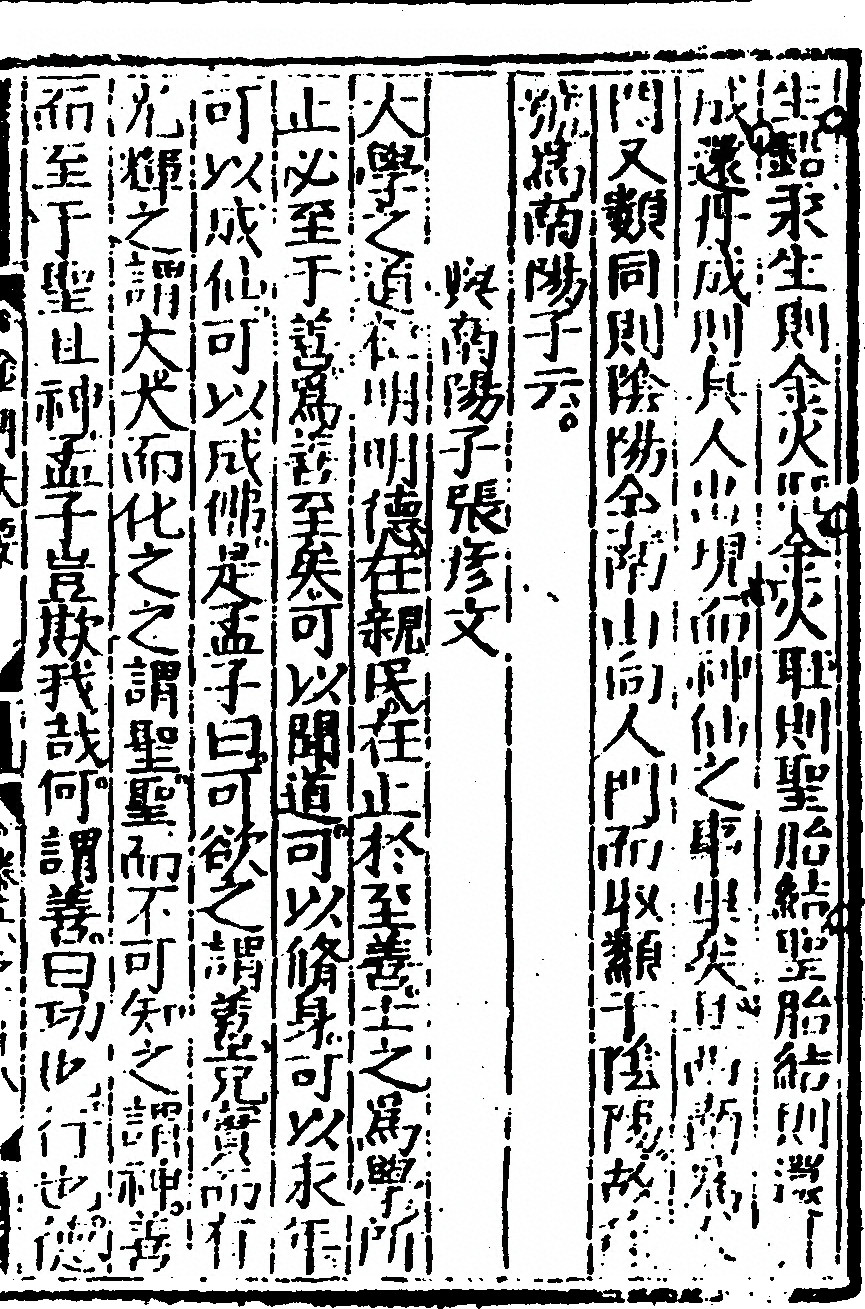 生鉛汞生則金火 金火 則聖胎結聖胎結則還
成還丹成則眞人出現而神仙之事畢矣
門又類同則陰陽 南山向人門而收類于陰陽故
號爲南陽子云
與南陽子張彥文
大學之道在明明德在親民在止於至善士之爲學所
止必至于善爲善至矣可以聞道可以脩身可以永年
可以成仙可以成佛是孟子曰可欲之謂善充實而有
光輝之謂大大而化之之謂聖聖而不可知之謂神善
而至于聖且神孟子豈欺我哉何謂善曰功也行也德